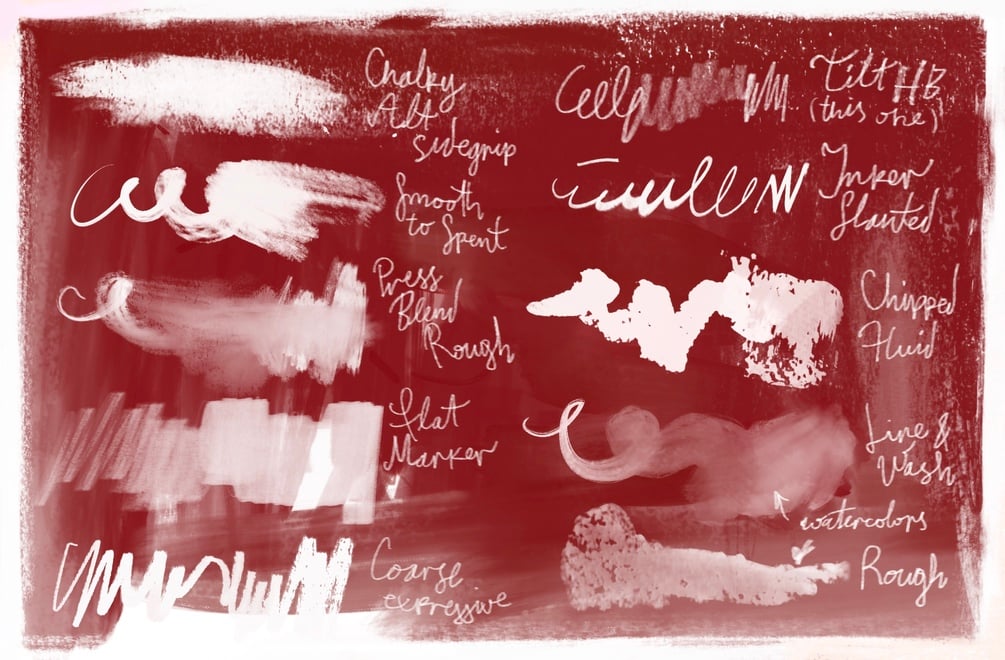 Chalky
Alt
Sidegrip
Smooth
to Spent
Press
Blend
Rough
Flat
Marker
Coarse
expressive
Tilt HB
(this one)
Inker
Slanted
Chipped
Fluid
Line &
Wash
watercolors
Rough